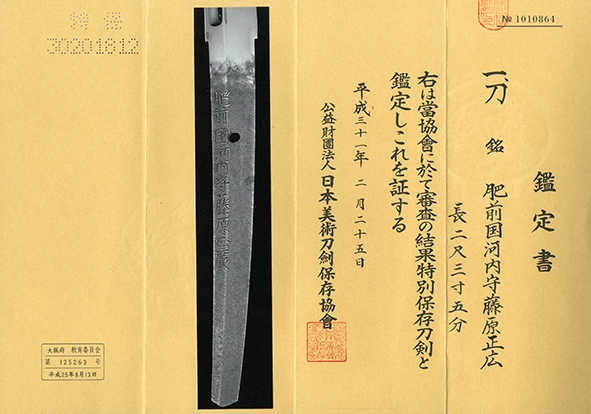 № 1010864
鑑定書
一、刀 銘 肥前国河内守藤原正広
長二尺三寸五分
右は當協會に於て審査の結果特別保存刀剣と
鑑定しこれを証する
平成三十一年二月二十五日
公益財團法人日本美術刀剣保存協會
肥前国河内守藤原正廣
特保
30201812
大阪府 教育委員会
第 125263 号
平成25年8月13日